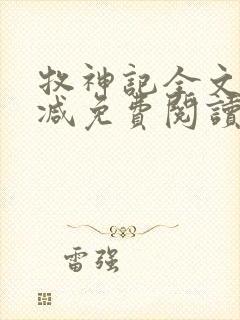 牧神記全文
减免費閱讀
雷强